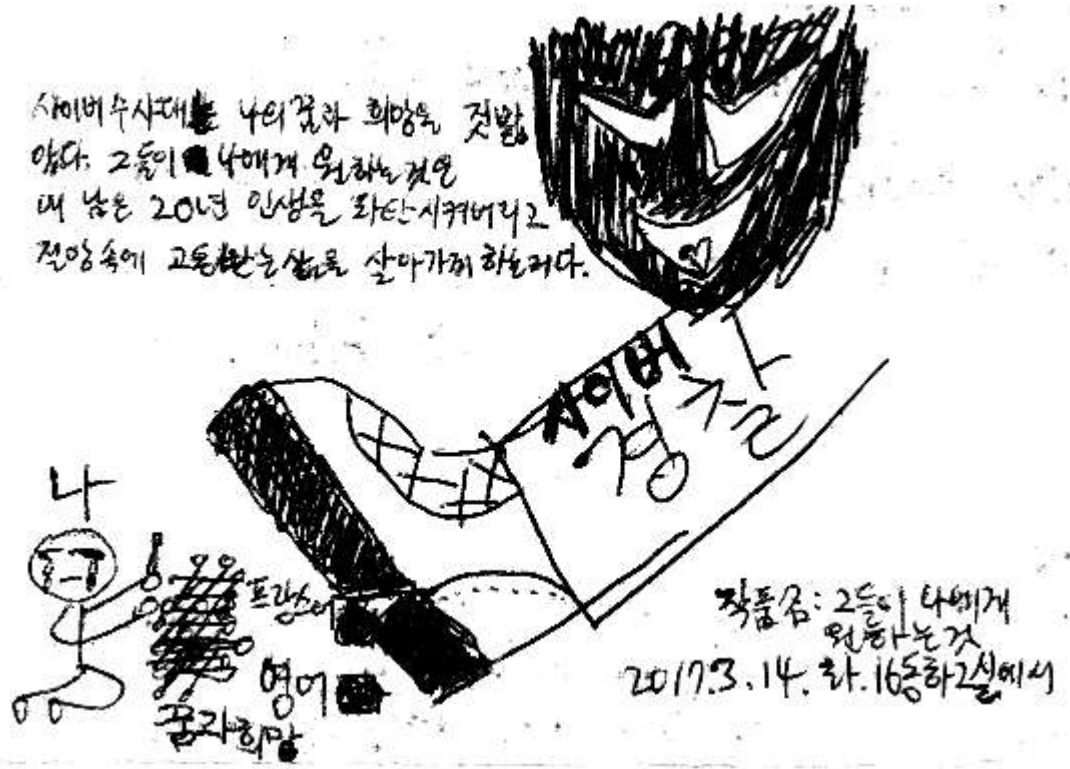 사이버수사대는 나의 꿈과 희망을 짓밟
았다. 그들이 나에게 원하는것은
내 남은 20년 인생을 파탄시켜버리고
절망속에 고통받는삶을 살아가게 하는거다.
사이버
경찰
나
프랑스어
영어
꿈과희망
작품명: 그들이 나에게
원하는것
2017.3.14. 화. 16동하2실에서